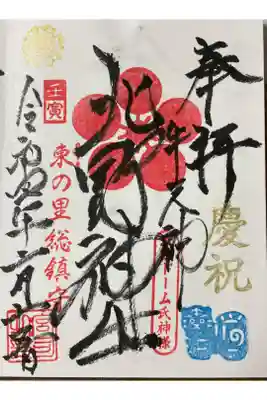 奉拝
慶祝
牛天神
ドーム氏神様
北野神社
東の里総鎮守
壬寅
令和四年二月